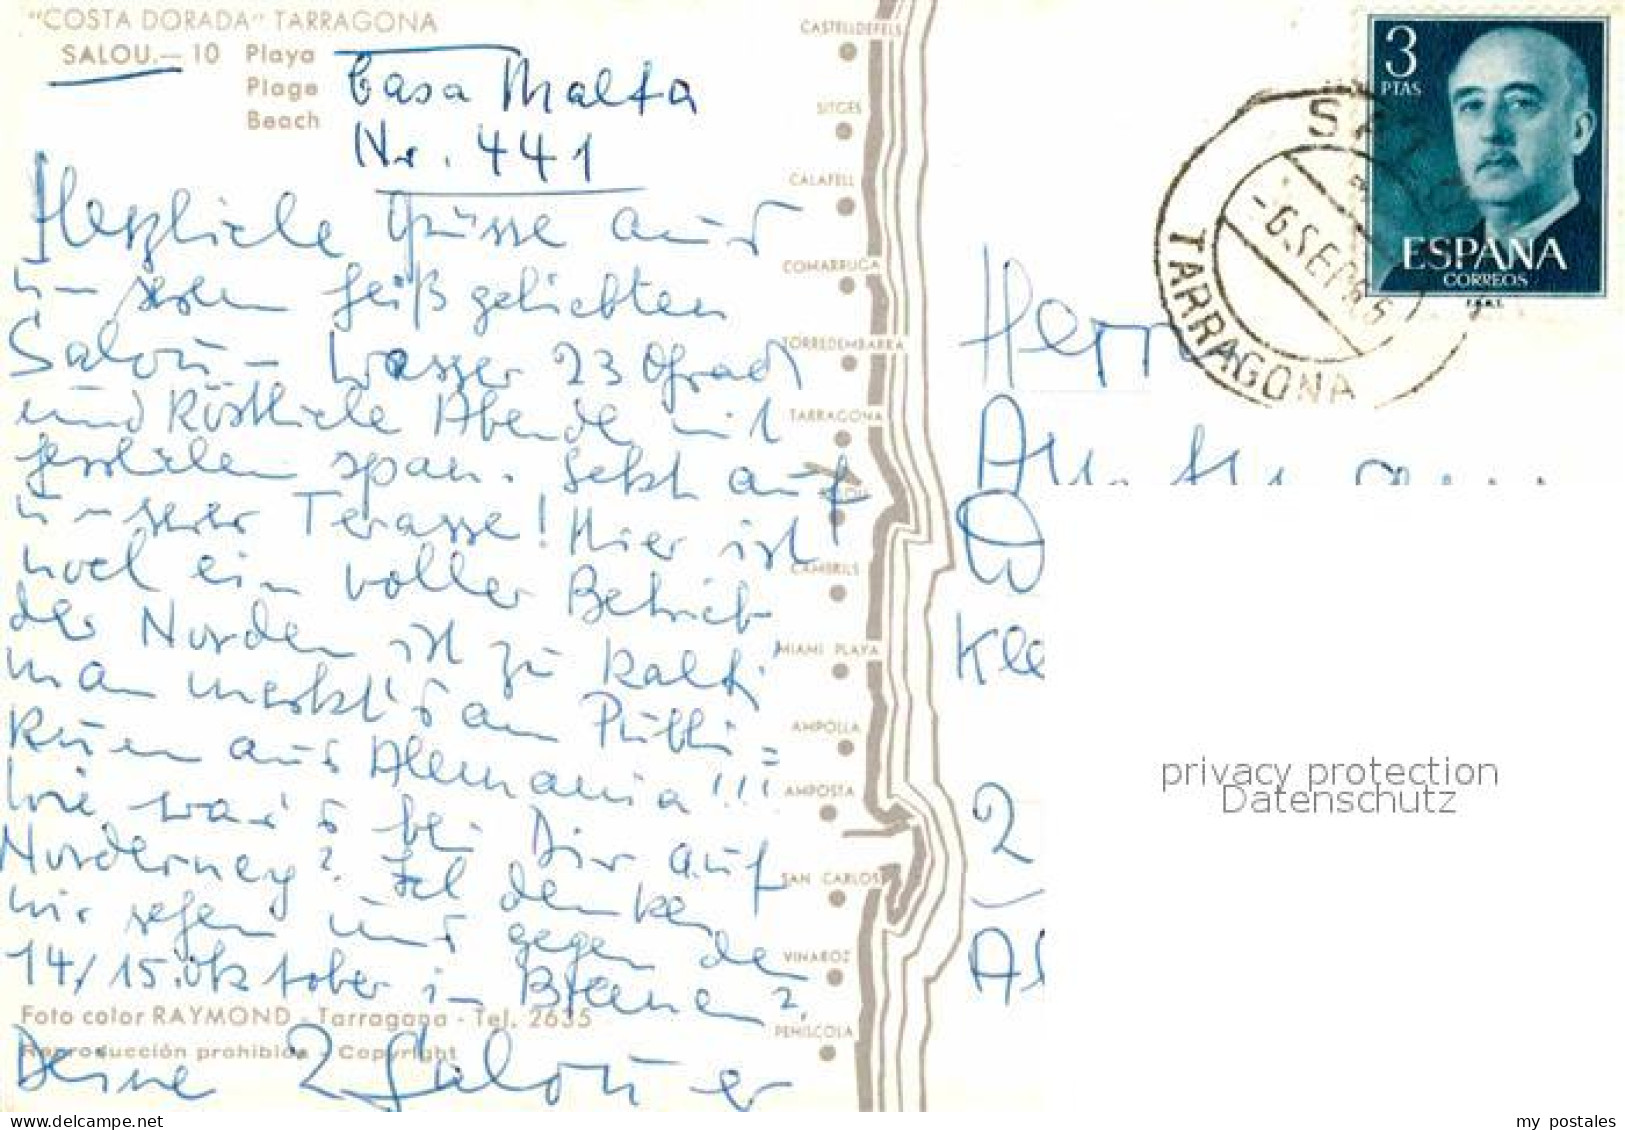 "COSTA DORADA" TARRAGONA
SALOU.— 10 Playa
Plage
Beach
Casa Malta
Nr. 441
Herzliche Grüsse aus
unserem heißgeliebten
Salou - Wasser 23 Grad
und köstliche Abende mit
herrlichem span. Sekt auf
unserer Terasse! Hier ist
noch ein voller Betrieb
der Norden ist zu kalt,
man merkt's am Publi=
kum aus Alemania!!!
Wie war's bei Dir auf
Norderney? Ich denken
wir sehen uns gegen den
14/15. Oktober in Bremen?
Foto color RAYMOND - Tarragona - Tel. 2635
Reproducción prohibida - Copyright
Deine 2 Salouer
CASTELLDEFELS
SITGES
CALAFELL
COMARRUGA
TORREDEMBARRA
TARRAGONA
SALOU
CAMBRILS
MIAMI PLAYA
AMPOLLA
AMPOSTA
SAN CARLOS
VINAROZ
PEÑISCOLA
3
PTAS
ESPAÑA
CORREOS
F.N.M.T.
-6 SEP
TARRAGONA
Herrn
Kle
2
privacy protection
Datenschutz
my postales